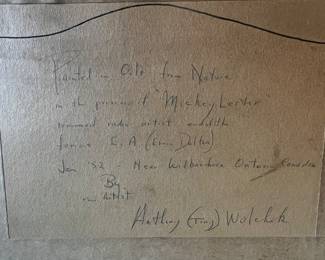 Painted in Oils from Nature
in the presence of "Mickey Lester"
renowned radio artist and the
famous E.A (
Jan '52 - Near Wilberforce Ontario Canada
By
artist
Anthony (Tony) Wolchok